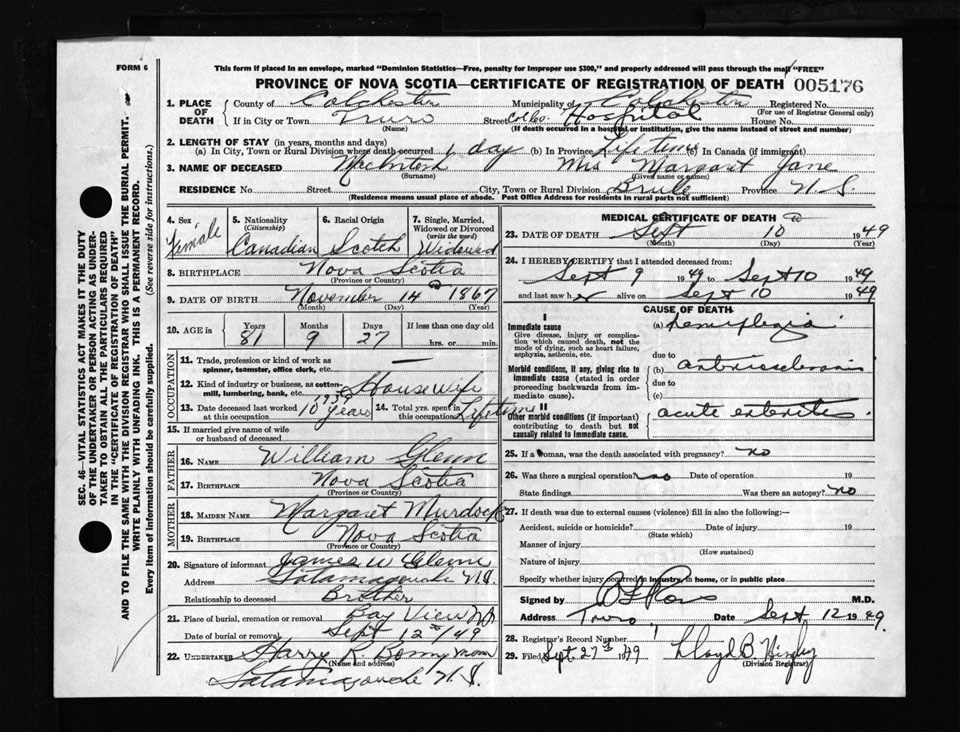 FORM 6
This form if placed in an envelope, marked "Dominion Statistics—Free, penalty for improper use $300," and properly addressed will pass through the mail "FREE"
PROVINCE OF NOVA SCOTIA—CERTIFICATE OF REGISTRATION OF DEATH 005176
1. PLACE OF DEATH County of Colchester Municipality of Colchester Registered No.
(For use of Registrar General only)
If in City or Town Truro Street Col Co. Hospital House No.
(Name) (If death occurred in a hospital or institution, give the name instead of street and number)
2. LENGTH OF STAY (in years, months and days)
(a) In City, Town or Rural Division where death occurred 1 day (b) In Province Lifetime (c) In Canada (if immigrant)
3. NAME OF DECEASED MacIntosh Mrs Margaret Jane
(Surname) (Given name or names)
RESIDENCE No. Street City, Town or Rural Division Brule Province N.S.
(Residence means usual place of abode. Post Office Address for residents in rural parts not sufficient)
4. Sex Female
5. Nationality (Citizenship) Canadian
6. Racial Origin Scotch
7. Single, Married, Widowed or Divorced (write the word) Widowed
8. BIRTHPLACE Nova Scotia
(Province or Country)
9. DATE OF BIRTH November 14 1867
(Month) (Day) (Year)
10. AGE in Years Months Days If less than one day old
81 9 27 hrs. or min.
OCCUPATION
11. Trade, profession or kind of work as spinner, teamster, office clerk, etc. —
12. Kind of industry or business, as cotton-mill, lumbering, bank, etc. Housewife
13. Date deceased last worked at this occupation 1939 10 years 14. Total yrs. spent in this occupation Lifetime
15. If married give name of wife or husband of deceased
FATHER
16. NAME William Glenn
17. BIRTHPLACE Nova Scotia
(Province or Country)
MOTHER
18. MAIDEN NAME Margaret Murdock
19. BIRTHPLACE Nova Scotia
(Province or Country)
20. Signature of informant James W Glenn
Address Tatamagouche N.S.
Relationship to deceased Brother
21. Place of burial, cremation or removal Bay View NS
Date of burial or removal Sept 12th/49
22. UNDERTAKER Harry R. Bonnyman
(Name and address)
Tatamagouche N.S.
MEDICAL CERTIFICATE OF DEATH
23. DATE OF DEATH Sept 10 1949
(Month) (Day) (Year)
24. I HEREBY CERTIFY that I attended deceased from:
Sept 9 1949 to Sept 10 1949
and last saw her alive on Sept 10 1949
CAUSE OF DEATH
I
Immediate cause (a) hemiplegia
Give disease, injury or complication which caused death, not the mode of dying, such as heart failure, asphyxia, asthenia, etc.
due to
Morbid conditions, if any, giving rise to immediate cause (stated in order proceeding backwards from immediate cause). (b) arteriosclerosis
due to
(c)
II
Other morbid conditions (if important) contributing to death but not causally related to immediate cause. acute enteritis.
25. If a woman, was the death associated with pregnancy? no
26. Was there a surgical operation? no Date of operation 19
State findings Was there an autopsy? no
27. If death was due to external causes (violence) fill in also the following:—
Accident, suicide or homicide? Date of injury 19
(State which)
Manner of injury
(How sustained)
Nature of injury
Specify whether injury occurred in industry, in home, or in public place
Signed M.D.
Address Truro Date Sept 12 1949.
28. Registrar's Record Number
29. Filed Sept. 27th 1949 Lloyd B.
(Division Registrar)
SEC. 46—VITAL STATISTICS ACT MAKES IT THE DUTY
OF THE UNDERTAKER OR PERSON ACTING AS UNDER-
TAKER TO OBTAIN ALL THE PARTICULARS REQUIRED
IN THE "CERTIFICATE OF REGISTRATION OF DEATH"
AND TO FILE THE SAME WITH THE DIVISION REGISTRAR WHO SHALL ISSUE THE BURIAL PERMIT.
WRITE PLAINLY WITH UNFADING INK. THIS IS A PERMANENT RECORD.
Every item of information should be carefully supplied. (See reverse side for instructions.)